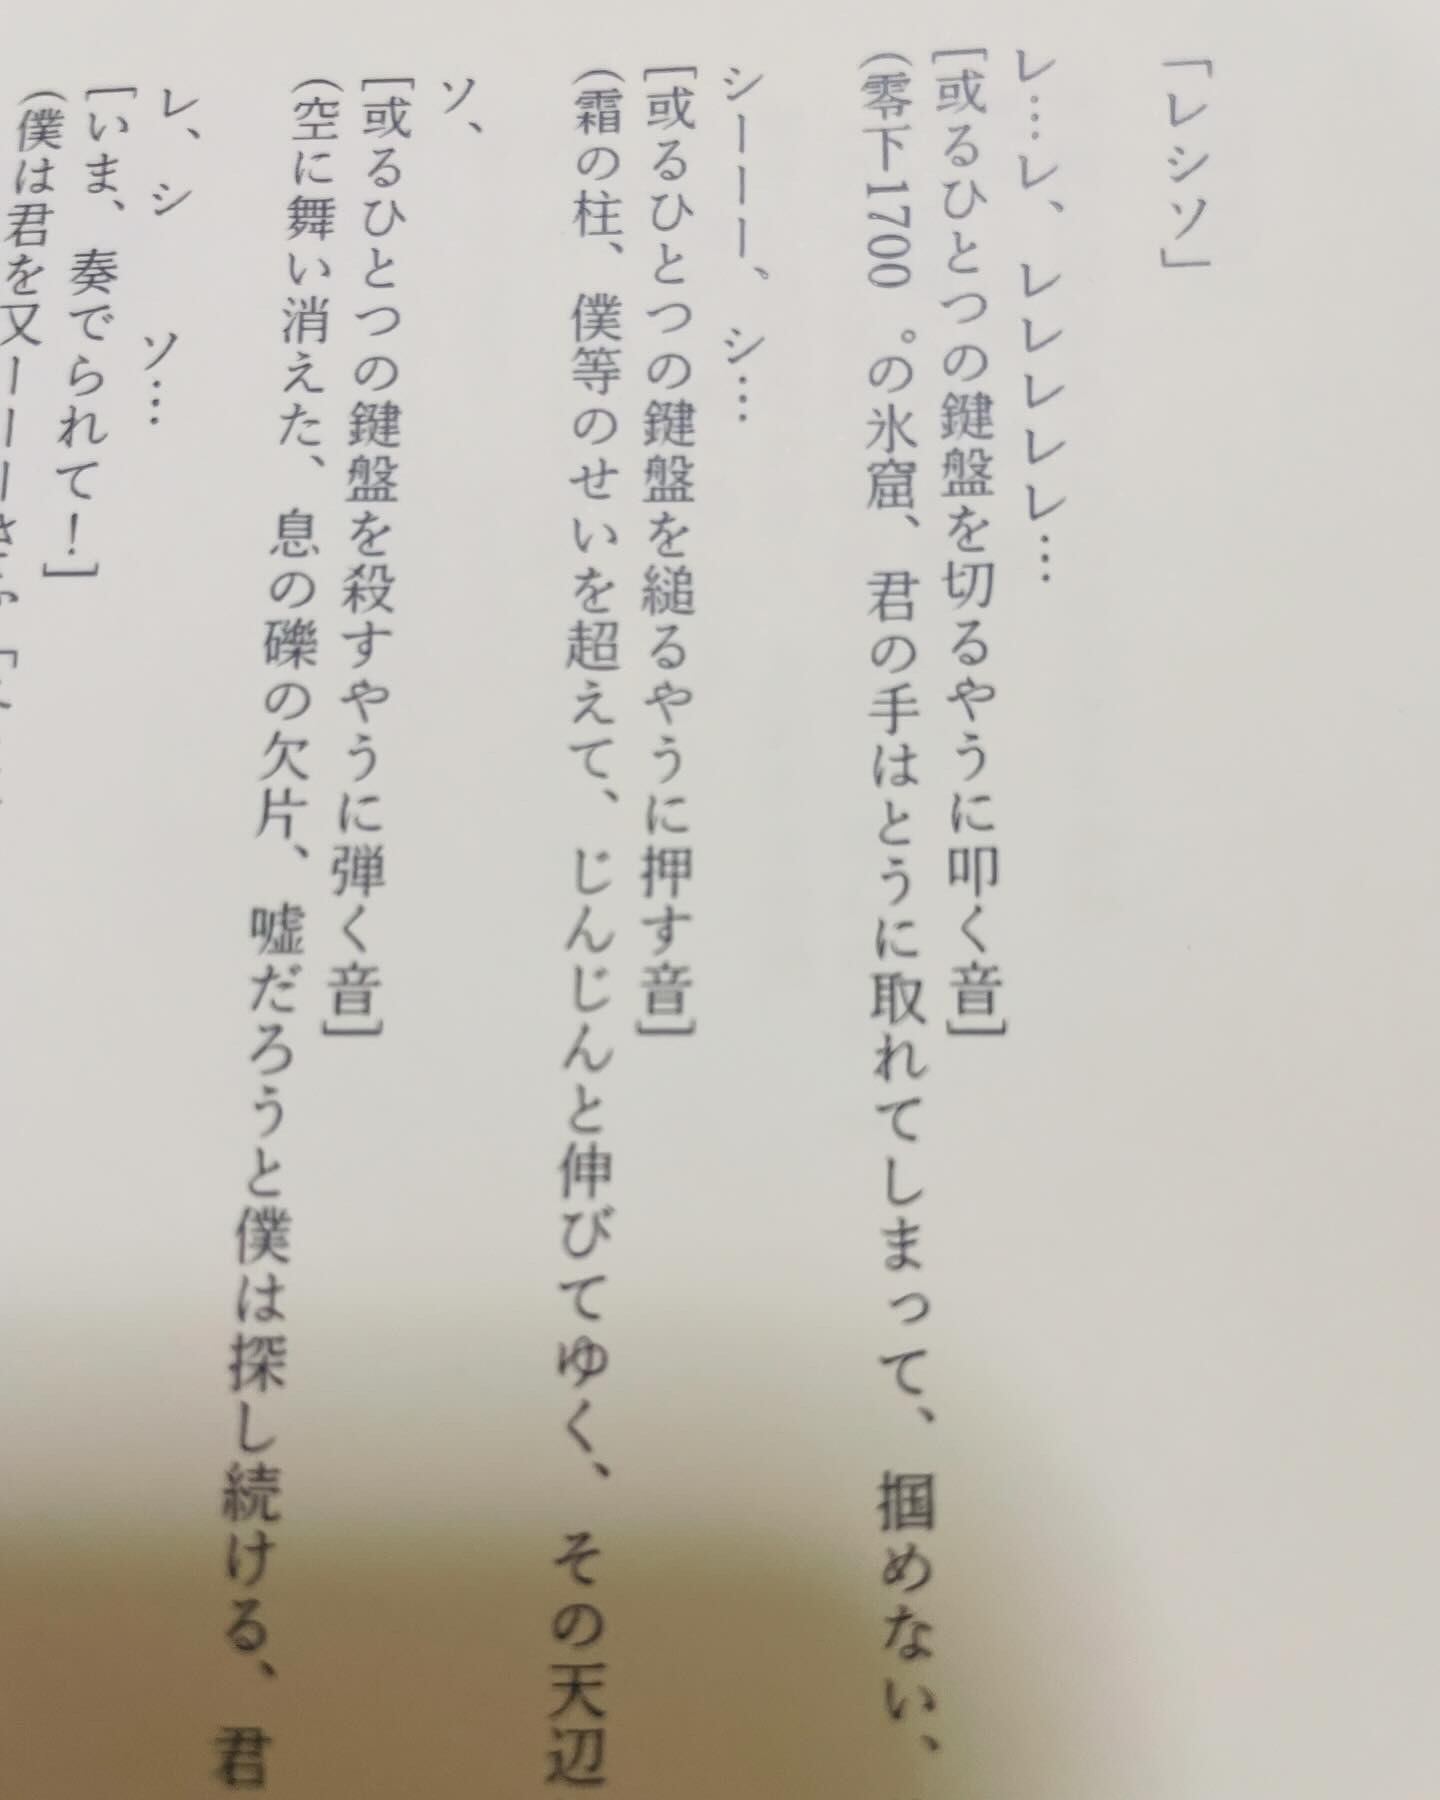 「レシソ」
レ…レ、レレレレレ…
[或るひとつの鍵盤を切るやうに叩く音]
(零下1700°の氷窟、君の手はとうに取れてしまって、掴めない、
シーーー、シ…
[或るひとつの鍵盤を縋るやうに押す音]
(霜の柱、僕等のせいを超えて、じんじんと伸びてゆく、その天辺
ソ、
[或るひとつの鍵盤を殺すやうに弾く音]
(空に舞い消えた、息の礫の欠片、嘘だろうと僕は探し続ける、君
レ、シ ソ…
[いま、奏でられて!]
(僕は君を又ーーー